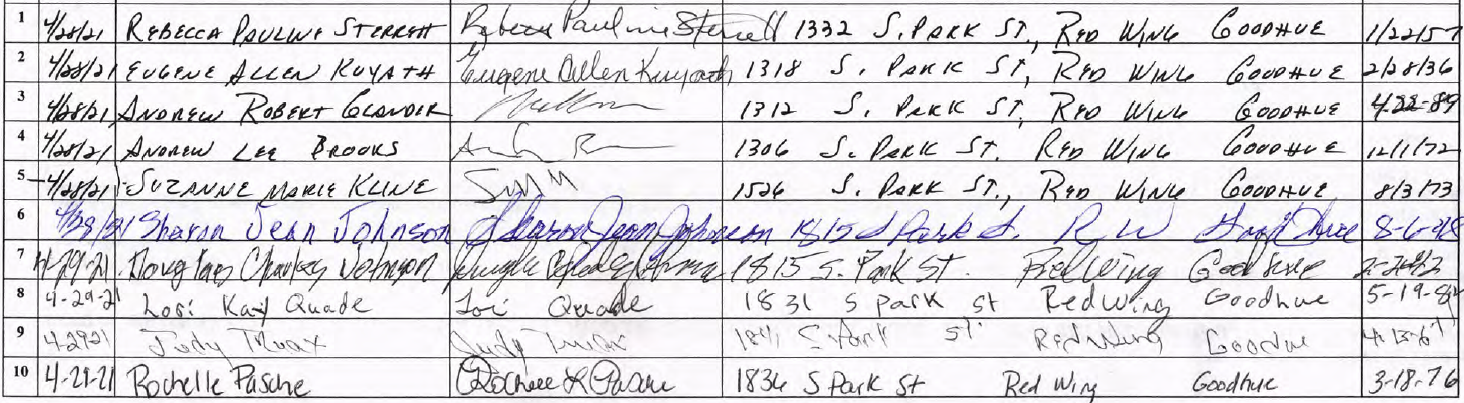 1 4/28/21 REBECCA PAULINE STERRETT Rebecca Pauline Sterrett 1332 S. PARK ST., RED WING GOODHUE 1/22/57
2 4/28/21 EUGENE ALLEN KUYATH Eugene Allen Kuyath 1318 S. PARK ST, RED WING GOODHUE 2/28/36
3 4/28/21 ANDREW ROBERT GLANDER 1312 S. PARK ST, RED WING GOODHUE 4-22-89
4 4/28/21 ANDREW LEE BROOKS 1306 S. PARK ST. RED WING GOODHUE 12/1/72
5 4/28/21 SUZANNE MARIE KLINE 1526 S. PARK ST., RED WING GOODHUE 8/3/73
6 4/28/21 Sharon Jean Johnson Sharon Jean Johnson 1815 S Park St. R W Goodhue 8-6-48
7 4-29-21 Douglas Charles Johnson 1815 S. Park St. Red Wing Goodhue
8 4-29-21 Lori Kay Quade Lori Quade 1831 S Park St Red Wing Goodhue
9 4-29-21 Judy Truax Judy Truax S Park St. Red Wing Goodhue
10 4-29-21 Rochelle Pasche Rochelle L Pasche 1836 S Park St Red Wing Goodhue 3-18-76